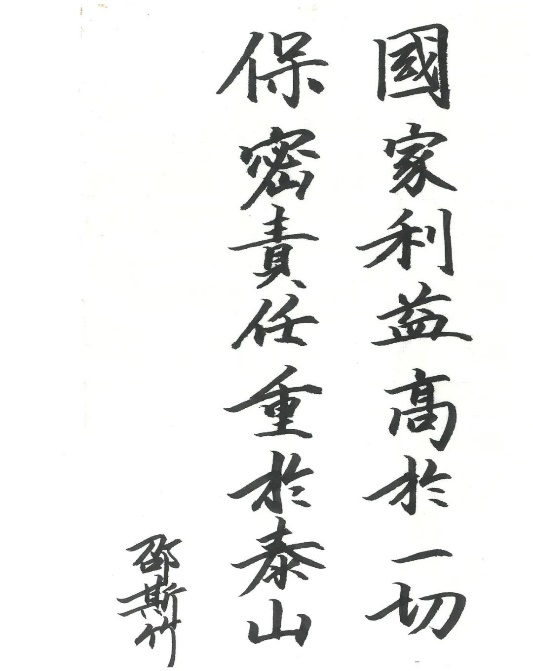 國家利益高於一切
保密責任重於泰山
邵斯竹